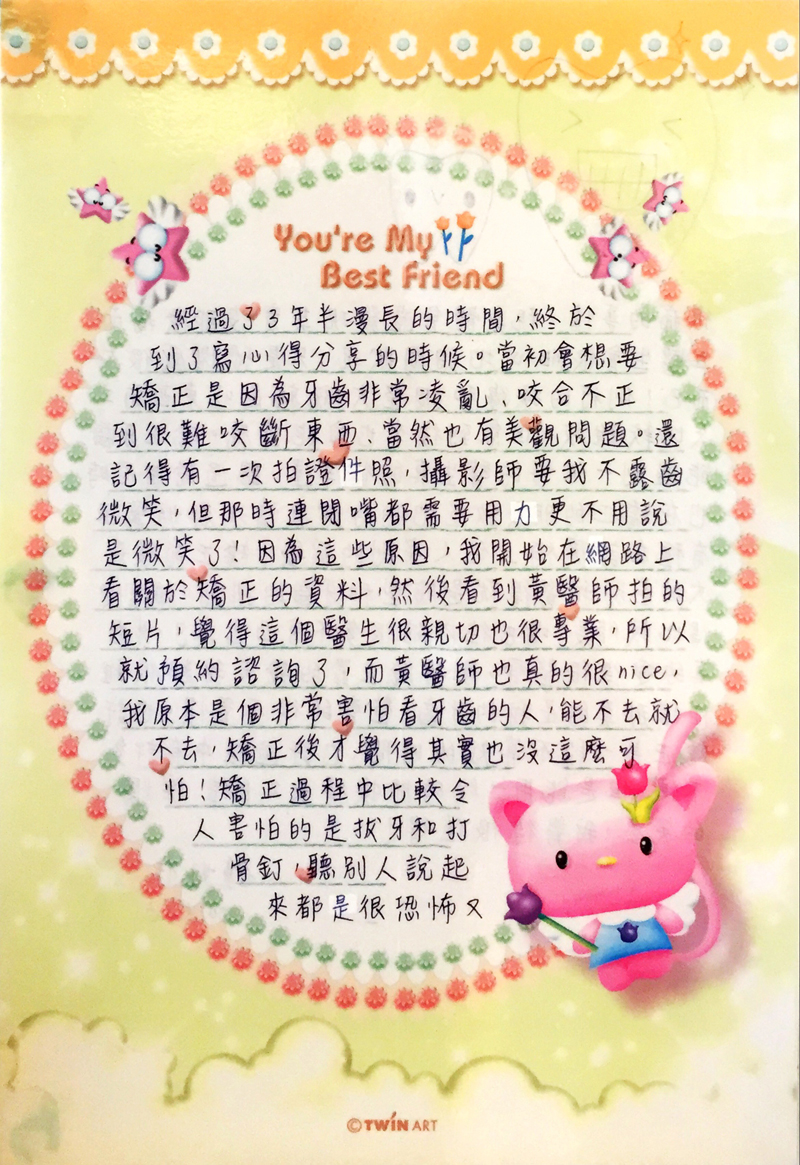 You're My
Best Friend
經過了3年半漫長的時間，終於
到了寫心得分享的時候。當初會想要
矯正是因為牙齒非常凌亂、咬合不正
到很難咬斷東西、當然也有美觀問題。還
記得有一次拍證件照，攝影師要我不露齒
微笑，但那時連閉嘴都需要用力更不用說
是微笑了！因為這些原因，我開始在網路上
看關於矯正的資料，然後看到黃醫師拍的
短片，覺得這個醫生很親切也很專業，所以
就預約諮詢了，而黃醫師也真的很nice，
我原本是個非常害怕看牙齒的人，能不去就
不去，矯正後才覺得其實也沒這麼可
怕！矯正過程中比較令
人害怕的是拔牙和打
骨釘，聽別人說起
來都是很恐怖又
©TWIN ART